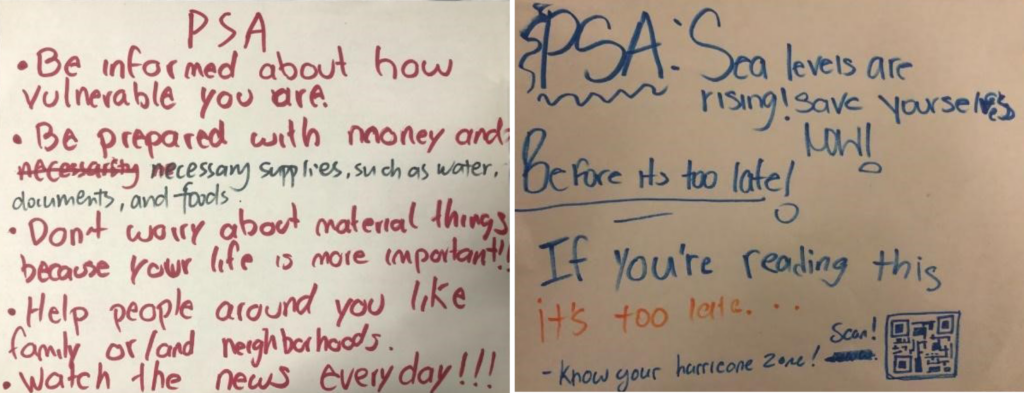 PSA
• Be informed about how
vulnerable you are.
• Be prepared with money and
necessary supplies, such as water,
documents, and foods.
• Don't worry about material things
because your life is more important!!
• Help people around you like
family or/and neighborhoods.
• Watch the news everyday!!!
PSA: Sea levels are
rising! Save yourselves
NOW!
Before its too late!
If you're reading this
it's too late...
Scan!
- Know your hurricane zone!